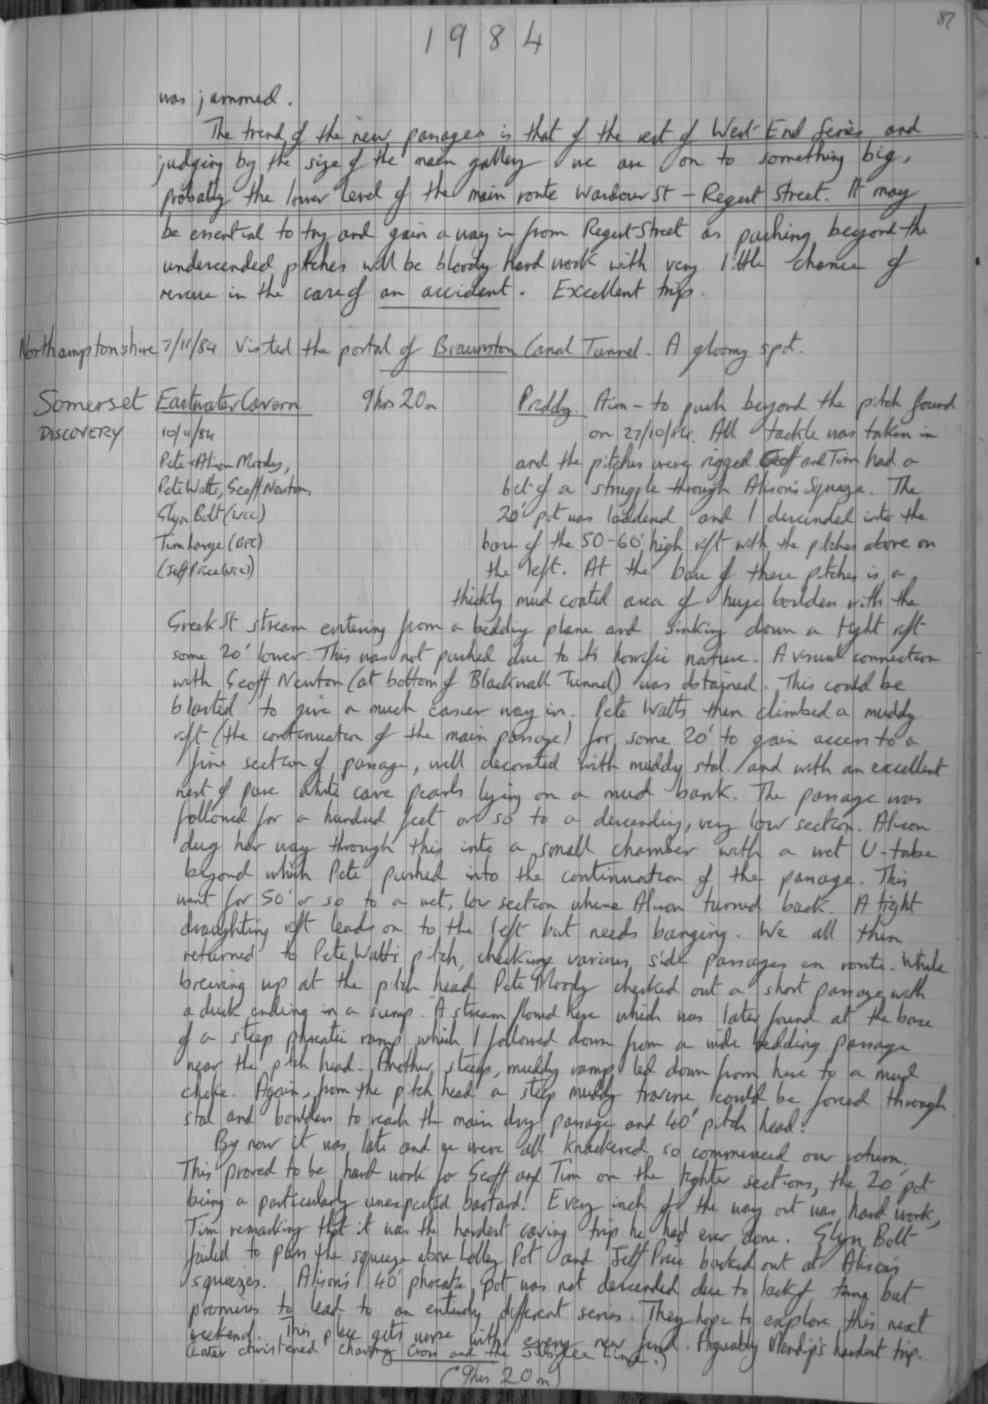 87
1984
was jammed.
The trend of the new passages is that of the rest of West End Series and
judging by the size of the main gallery we are on to something big,
probably the lower level of the main route Wardour St - Regent Street. It may
be essential to try and gain a way in from Regent Street as pushing beyond the
undescended pitches will be bloody hard work with very little chance of
rescue in the case of an accident. Excellent trip.
Northamptonshire 7/11/84 Visited the portal of Braunston Canal Tunnel. A gloomy spot.
Somerset Eastwater Cavern 9hrs 20m Priddy Aim - to push beyond the pitch found
DISCOVERY 10/11/84 on 27/10/84. All tackle was taken in
Pete + Alison Moody, and the pitches were rigged Geoff and Tim had a
Pete Watts, Geoff Newton, bit of a struggle through Alison's Squeeze. The
Glyn Bolt (WCC) 20' pot was laddered and I descended into the
Tim Large (BEC) base of the 50-60' high rift with the pitches above on
(Jeff Price (WCC) the left. At the base of these pitches is a
thickly mud coated area of huge boulders with the
Greek St stream entering from a bedding plane and sinking down a tight rift
some 20' lower. This was not pushed due to its horrific nature. A visual connection
with Geoff Newton (at bottom of Blackwall Tunnel) was obtained. This could be
blasted to give a much easier way in. Pete Watts then climbed a muddy
rift (the continuation of the main passage) for some 20' to gain access to a
fine section of passage, well decorated with muddy stal. and with an excellent
nest of pure white cave pearls lying on a mud bank. The passage was
followed for a hundred feet or so to a descending, very low section. Alison
dug her way through this into a small chamber with a wet U-tube
beyond which Pete pushed into the continuation of the passage. This
went for 50' or so to a wet, low section where Alison turned back. A tight
draughting rift leads on to the left but needs banging. We all then
returned to Pete Watts pitch, checking various side passages en route. While
brewing up at the pitch head Pete Moody checked out a short passage with
a duck ending in a sump. A stream flowed here which was later found at the base
of a steep phreatic ramp which I followed down from a wide bedding passage
near the pitch head. Another steep, muddy ramp led down from here to a mud
choke. Again, from the pitch head a steep muddy traverse could be forced through
stal and boulders to reach the main dry passage and 40' pitch head!
By now it was late and we were all knackered so commenced our return.
This proved to be hard work for Geoff and Tim on the tighter sections, the 20' pot
being a particularly unexpected bastard! Every inch of the way out was hard work,
Tim remarking that it was the hardest caving trip he had ever done. Glyn Bolt
failed to pass the squeeze above Lolly Pot and Jeff Price backed out at Alison's
squeezes. Alison's 40' phreatic pot was not descended due to lack of time but
promises to lead to an entirely different series. They hope to explore this next
weekend. This place gets worse with every new find. Arguably Mendip's hardest trip.
(Later christened Charing Cross and the Jubilee Line.)
(9hrs 20m)